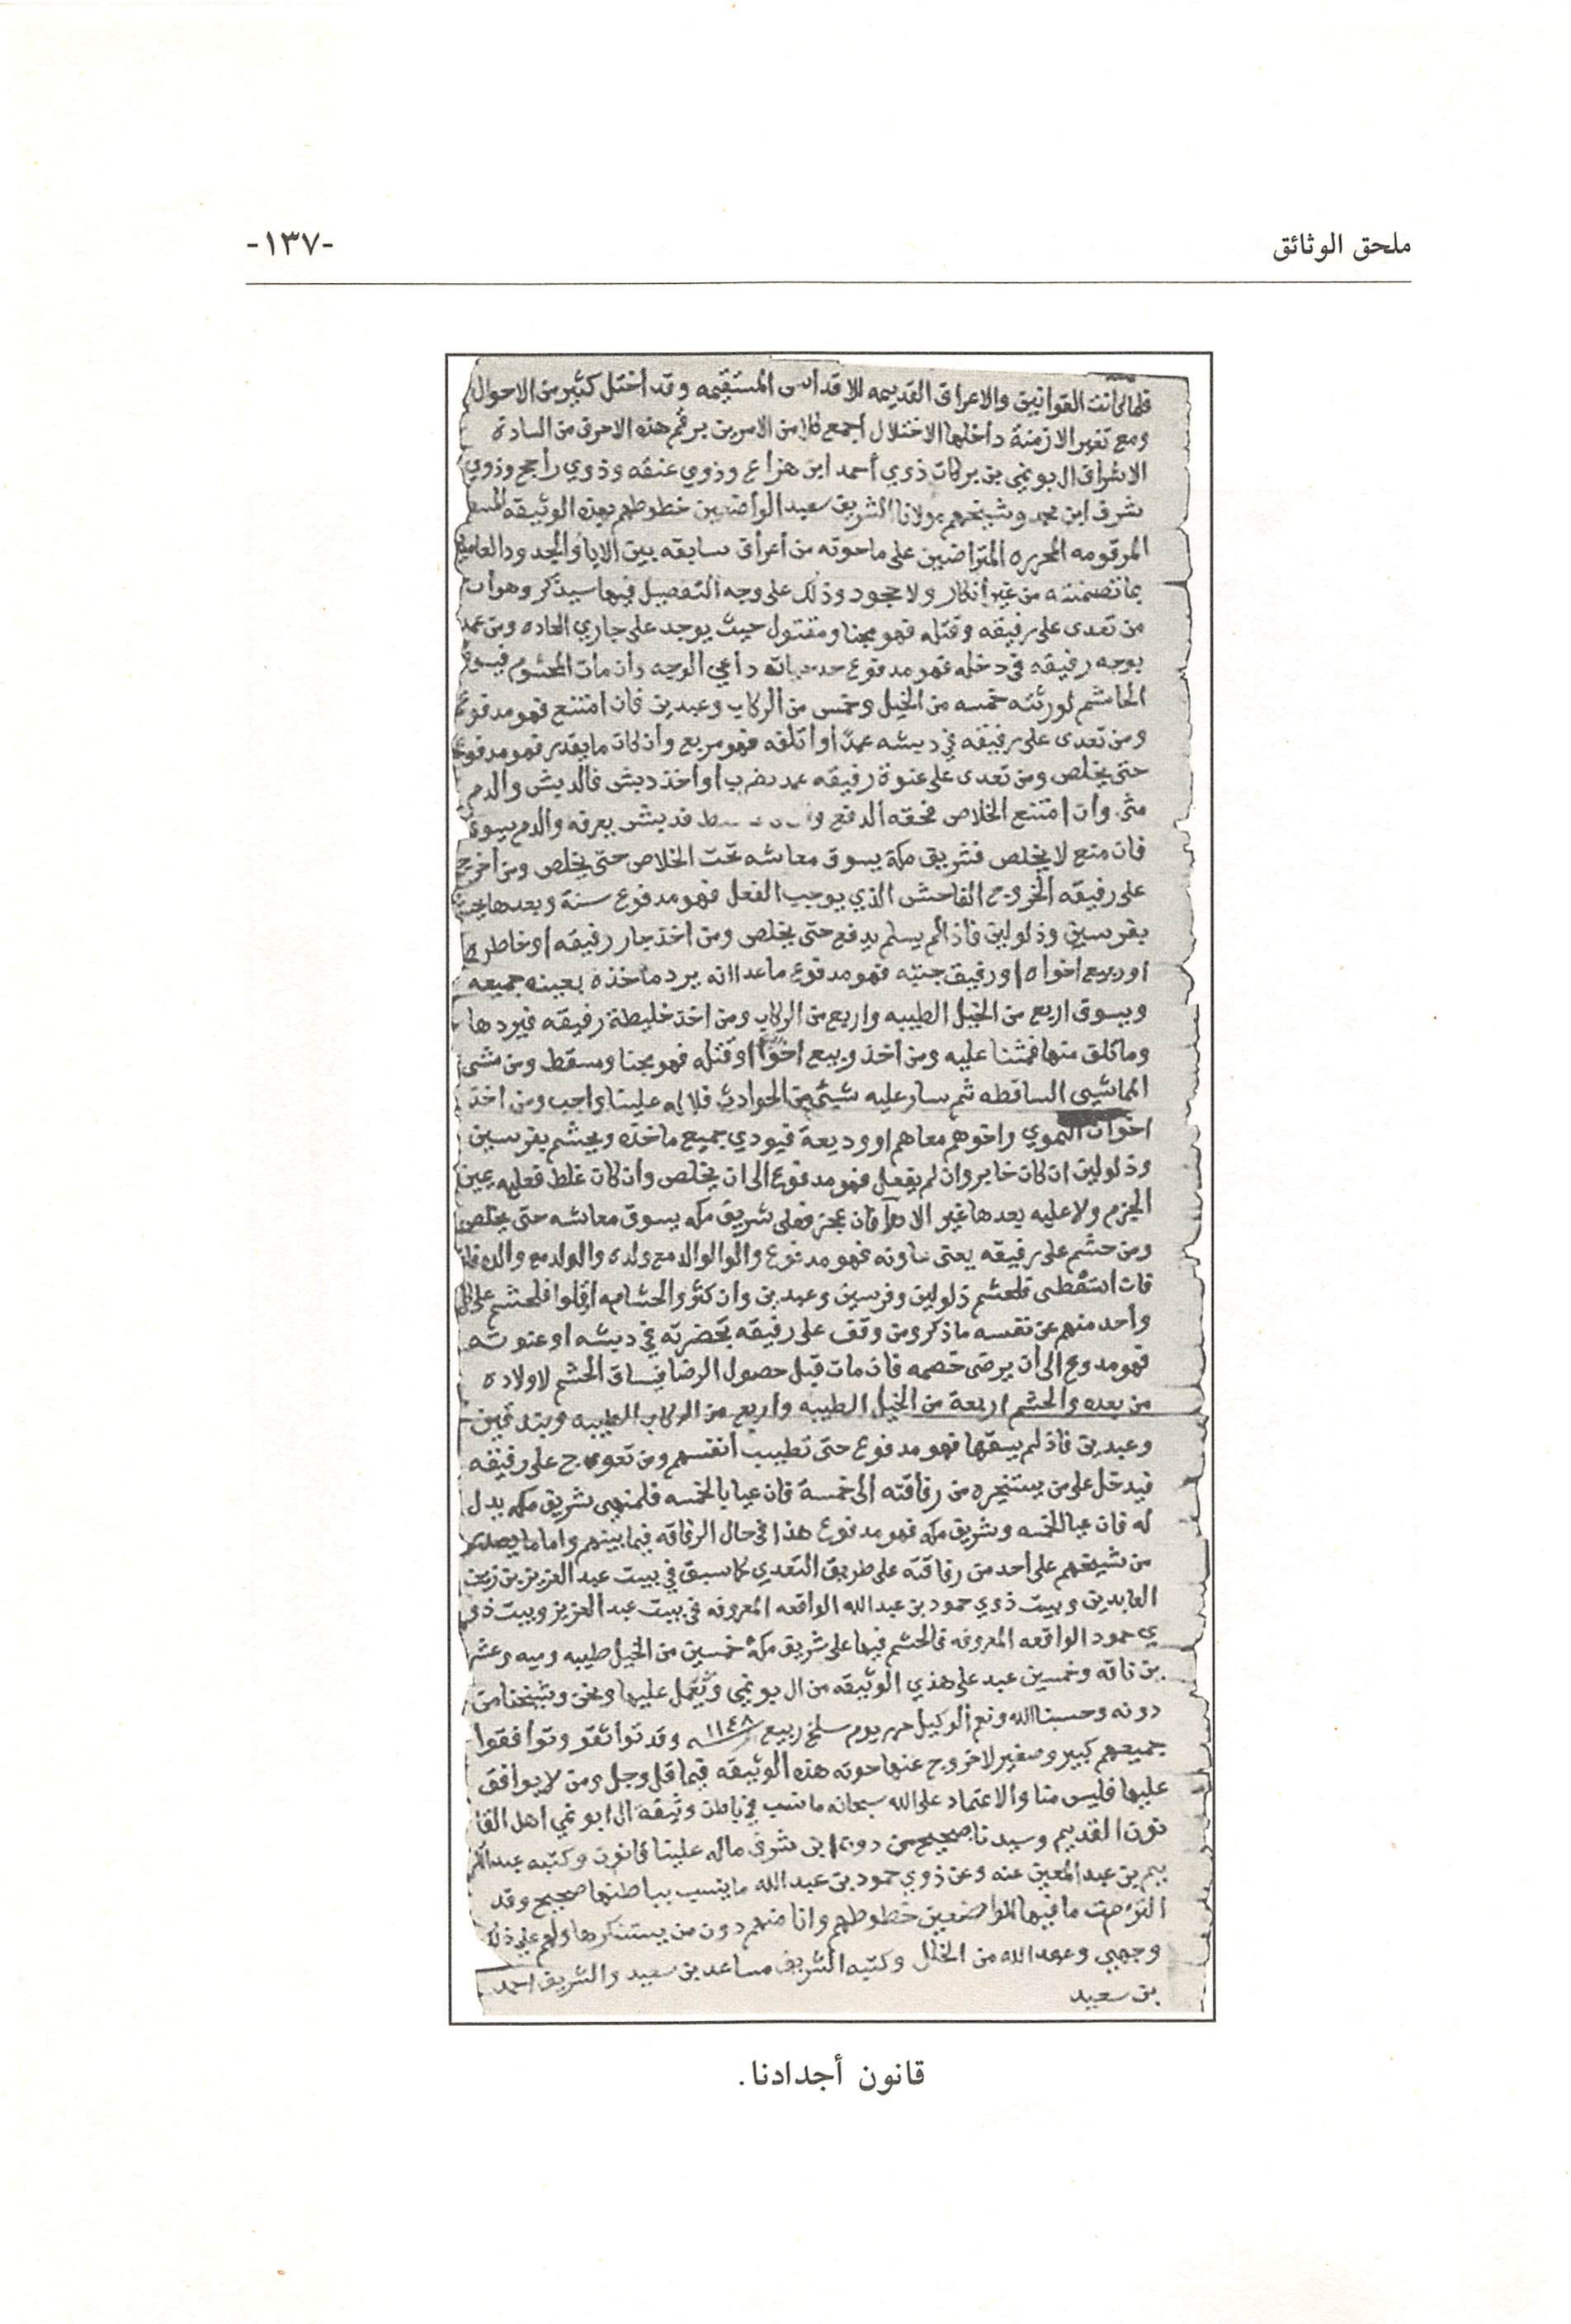 ملحق الوثائق
-١٣٧-
فلما كانت القوانين والاعراف القديمه للاقداس المستقيمه وقد اختل كثير من الاحوال
ومع تغير الازمنة داخلها الاختلال اجمع كلا من الامرين برقم هذه الاحرف من السادة
الاشراف ال بونمي بن بركات ذوي أحمد ابن هزاع وذوي عنقه وذوي راجح وذوي
شرف ابن محمد وشيخهم مولانا الشريف سعيد الواضعين خطوطهم بهذه الوثيقه
المرقومه المحرره المتراضين على ماحوته من أعراف سابقه بين الابا والجدود
بما تضمنته من غير أنكار ولا جحود وذلك على وجه التفصيل فيما سيذكر وهو أن
من تعدى على رفيقه وقتله فهو مجنا ومقتول حيث يوجد على جاري العاده ومن عمد
بوجه رفيقه في دخله فهو مدفوع حد حياته داعي الوجه وأن مات المحشوم فيسوق
الحاشم لورثته خمسه من الخيل وخمس من الركاب وعبدين فان امتنع فهو مدفوع
ومن تعدى على رفيقه في دبشه عمدا أو اتلفه فهو مربع وأن كان ما يقدر فهو مدفوع
حتى يخلص ومن تعدى على عنوة رفيقه عمد بضرب أو أخذ دبش فالدبش والدم
مثنى وان امتنع الخلاص فحقه الدفع فدبش يعرفه والدم يسوق
فان منع لا يخلص فشريف مكة يسوق معاشه تحت الخلاص حتى يخلص ومن اخرج
على رفيقه الخروج الفاحش الذي يوجب الفعل فهو مدفوع سنة وبعدها يحشم
بفرسين وذلولين فاذا لم يسلم يدفع حتى يخلص ومن اخذ جار رفيقه او خاطره
او ربيع اخواه او رفيق جنبه فهو مدفوع ماعدا انه يرد ماخذه بعينه جميعه
ويسوق اربع من الخيل الطيبه واربع من الركاب ومن اخذ خليطة رفيقه فيردها
وما تلف منها فمثنا عليه ومن أخذ وبيع اخوا او قتله فهو مجنا ومسقط ومن مشى
المماشي الساقطه ثم سار عليه شيئ من الحوادث فلا له علينا واجب ومن اخذ
اخوان النموي واخوهم معاهم او وديعة فيودي جميع ماخذه ويحشم بفرسين
وذلولين ان كان خابر وان لم يفعل فهو مدفوع الى ان يخلص وأن كان غلط فعليه يمين
الجزم ولا عليه بعدها غير الادا فان عجز فعلى شريف مكه يسوق معاشه حتى يخلص
ومن حشم على رفيقه يعنى فهو مدفوع والوالد مع ولده والولد مع والده
فان استقطى فلحشم ذلولين وفرسين وعبدين وان كثر والحشامه او قلوا فلحشم على كل
واحد منهم عن نفسه ما ذكر ومن وقف على رفيقه بحضرته في دبشه او عنوته
فهو مدفوع الى ان يرضى خصمه فان مات قبل حصول الرضا فيساق الحشم لاولاده
من بعده والحشم اربعة من الخيل الطيبه واربع من الركاب الطيبه وبندقين
وعبدين فاذ لم يسقها فهو مدفوع حتى تطيب أنفسهم ومن تعوج على رفيقه
فيدخل على من يستخيره من رفاقته الى خمسة فان عيا بالخمسه فلمنهى شريف مكه يدل
له فان عيا للخمسه وشريف مكه فهو مدفوع هذا في حال الرفاقه فيما بينهم واما ما يصدر
من شيخهم على احد من رفاقته على طريق التعدي كما سبق في بيت عبد العزيز بن زين
العابدين وبيت ذوي حمود بن عبد الله الواقعه المعروفه في بيت عبد العزيز وبيت ذو
ي حمود الواقعه المعروفه فالحشم فيها على شريف مكة خمسين من الخيل طيبه وميه وعشر
ين ناقه وخمسين عبد على هذي الوثيقه من ال بونمي ونعمل عليها ونحن وشيخنا من
دونه وحسبنا الله ونعم الوكيل حرر يوم سلخ ربيع ١١٤٨ وقد تواثقو وتوافقوا
جميعهم كبير وصغير لاخروج عنها حوته هذه الوثيقه فيما قل وجل ومن لا يوافق
عليها فليس منا والاعتماد على الله سبحانه ما نسب في باطن وثيقة ال ابو نمي اهل القا
نون القديم وسيدنا صحيح من دونها ابن شرف ماله علينا قانون وكتبه عبد الكر
يم بن عبد المعين عنه وعن ذوي حمود بن عبد الله ما ينسب بباطنها صحيح وقد
التزمت ما فيها للواضعين خطوطهم وانا منهم دون من يستنكرها ولهم على ذلك
وجهي وعهد الله من الخلل وكتبه الشريف مساعد بن سعيد والشريف احمد
بن سعيد
قانون أجدادنا.